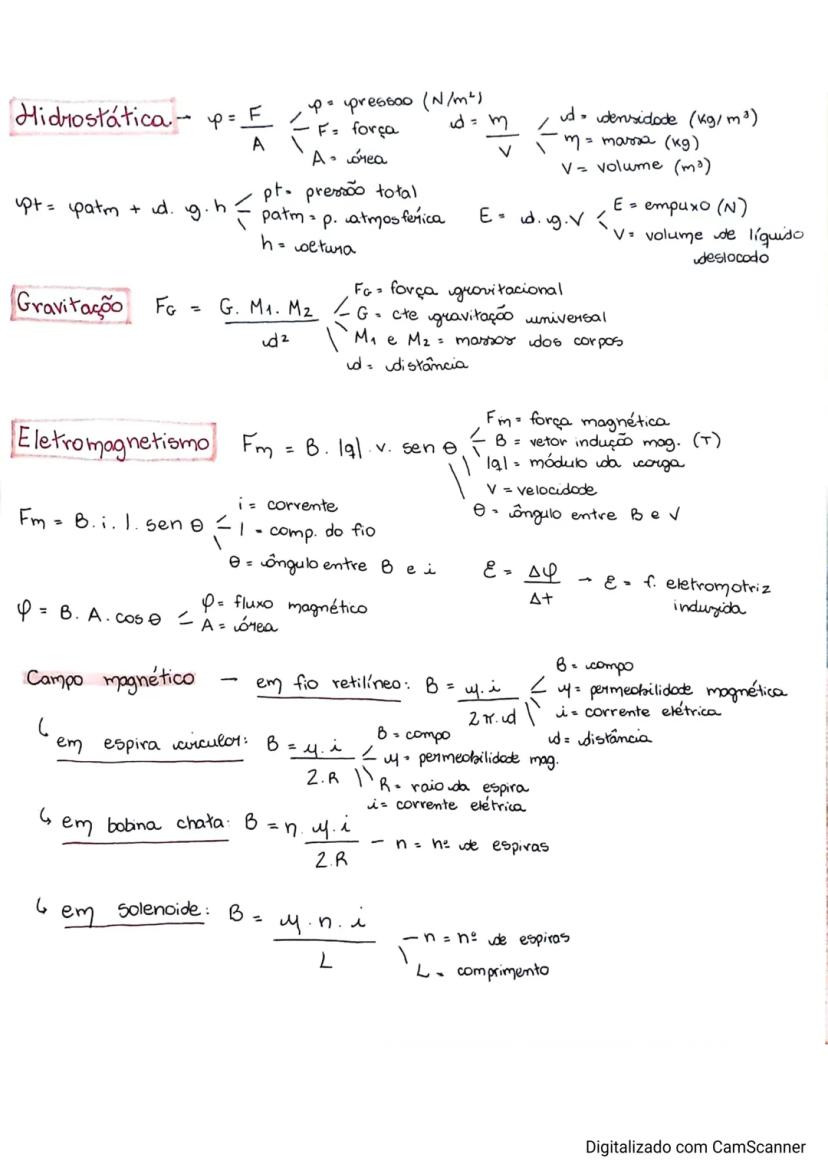 Hidrostática → p = F / A
p = pressão (N/m²)
F = força
A = área
d = m / V
d = densidade (kg/m³)
m = massa (kg)
V = volume (m³)
pt = patm + d. g. h
pt = pressão total
patm = p. atmosférica
h = altura
E = d. g. V
E = empuxo (N)
V = volume de líquido
deslocado
Gravitação FG = G. M1. M2 / d²
FG = força gravitacional
G = cte gravitação universal
M1 e M2 = massas dos corpos
d = distância
Eletromagnetismo Fm = B. |q|. v. sen θ
Fm = força magnética
B = vetor indução mag. (T)
|q| = módulo da carga
V = velocidade
θ = ângulo entre B e V
Fm = B. i. l. sen θ
i = corrente
l = comp. do fio
θ = ângulo entre B e i
ε = Δφ / Δt → ε = f. eletromotriz
induzida
φ = B. A. cos θ
φ = fluxo magnético
A = área
Campo magnético — em fio retilíneo: B = μ. i / 2 π. d
B = campo
μ = permeabilidade magnética
i = corrente elétrica
d = distância
↳ em espira circular: B = μ. i / 2. R
B = campo
μ = permeabilidade mag.
R = raio da espira
i = corrente elétrica
↳ em bobina chata: B = n. μ. i / 2. R — n = nº de espiras
↳ em solenoide: B = μ. n. i / L
n = nº de espiras
L = comprimento
Digitalizado com CamScanner